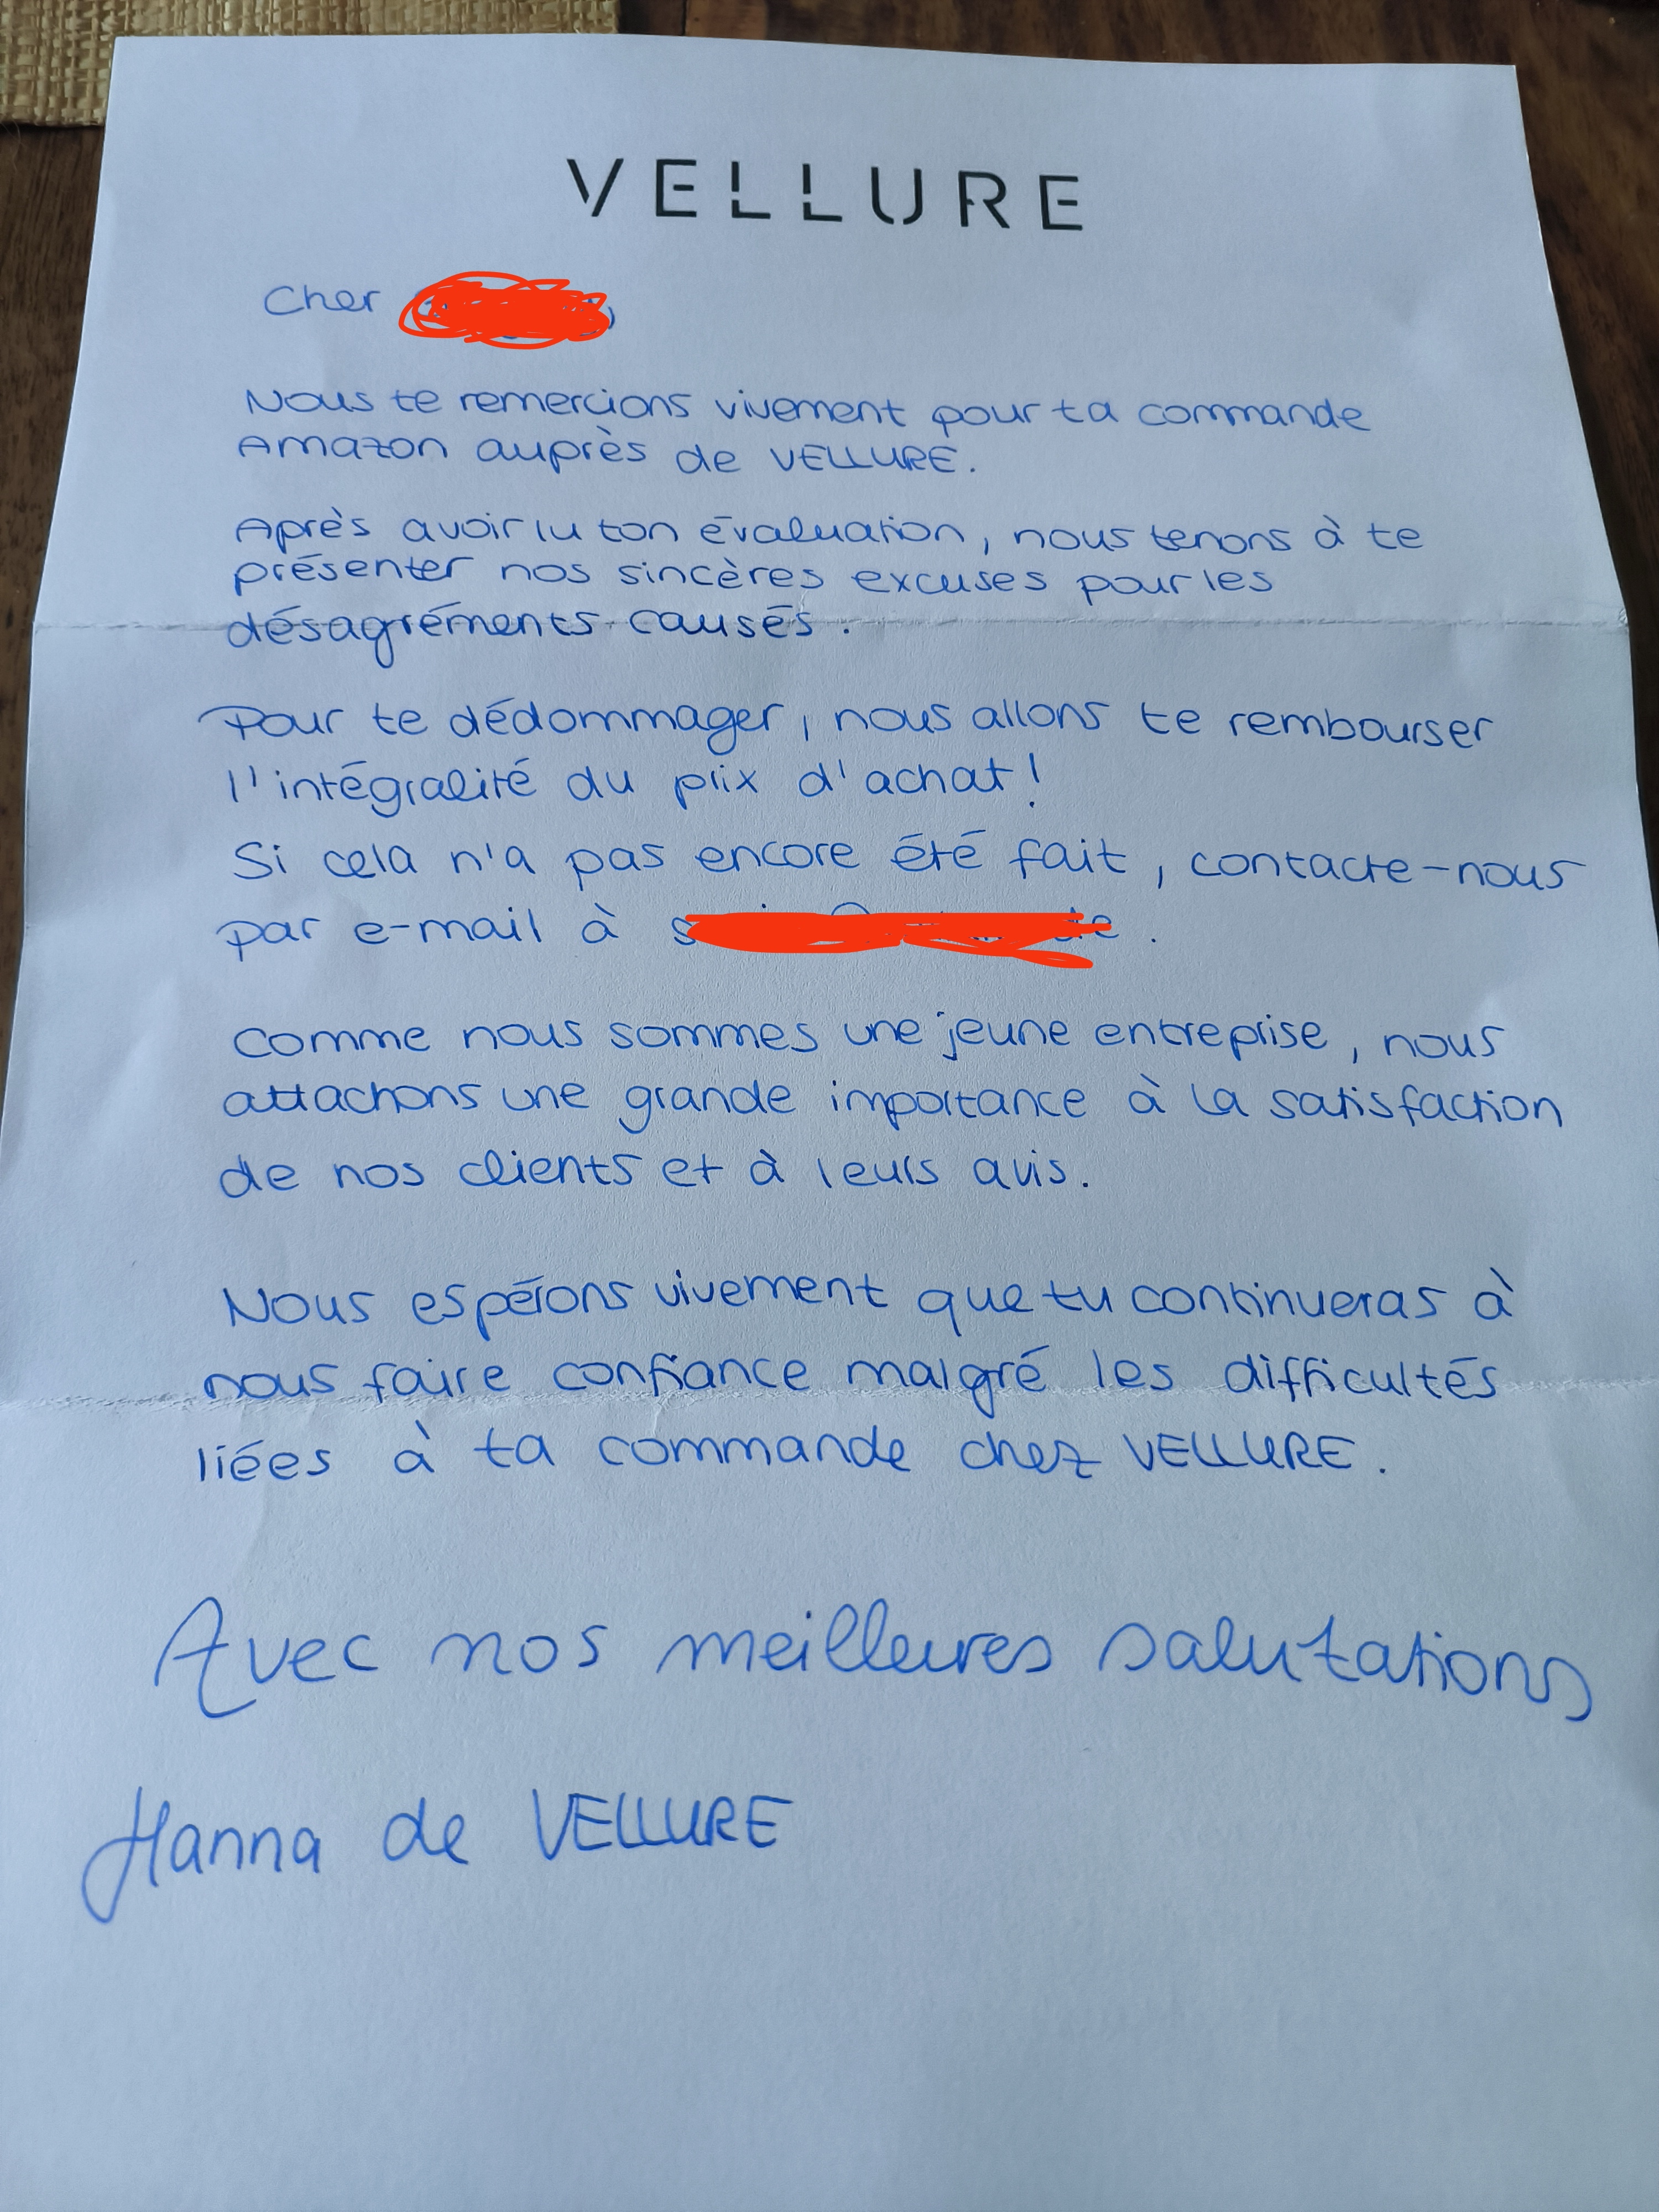 VELLURE
Cher
Nous te remercions vivement pour ta commande
Amazon auprès de VELLURE.
Après avoir lu ton évaluation, nous tenons à te
présenter nos sincères excuses pour les
désagréments causés.
Pour te dédommager, nous allons te rembourser
l'intégralité du prix d'achat!
Si cela n'a pas encore été fait, contacte-nous
par e-mail à
Comme nous sommes une jeune entreprise, nous
attachons une grande importance à la satisfaction
de nos clients et à leurs avis.
Nous espérons vivement que tu continueras à
nous faire confiance malgré les difficultés
liées à ta commande chez VELLURE.
Avec nos meilleures salutations
Hanna de VELLURE